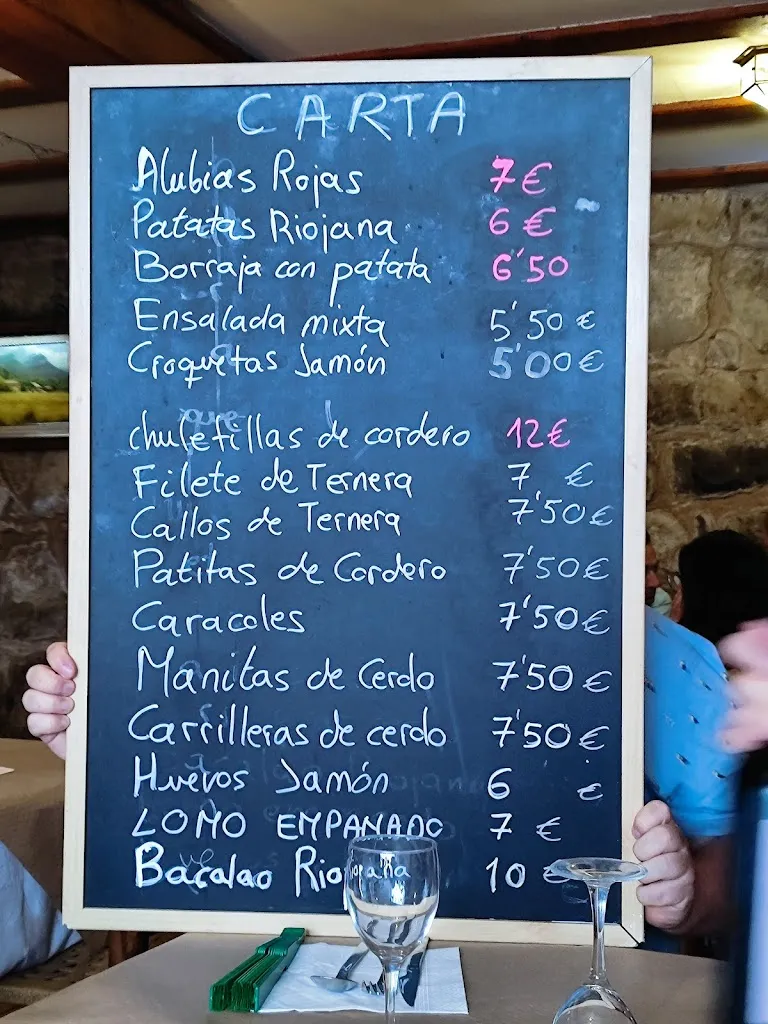 CARTA
Alubias Rojas 7€
Patatas Riojana 6€
Borraja con patata 6'50
Ensalada mixta 5'50€
Croquetas Jamón 5'00€
chuletillas de cordero 12€
Filete de Ternera 7 €
Callos de Ternera 7'50€
Patitas de Cordero 7'50€
Caracoles 7'50€
Manitas de Cerdo 7'50€
Carrilleras de cerdo 7'50€
Huevos Jamón 6 €
LOMO EMPANADO 7 €
Bacalao Riojana 10 €